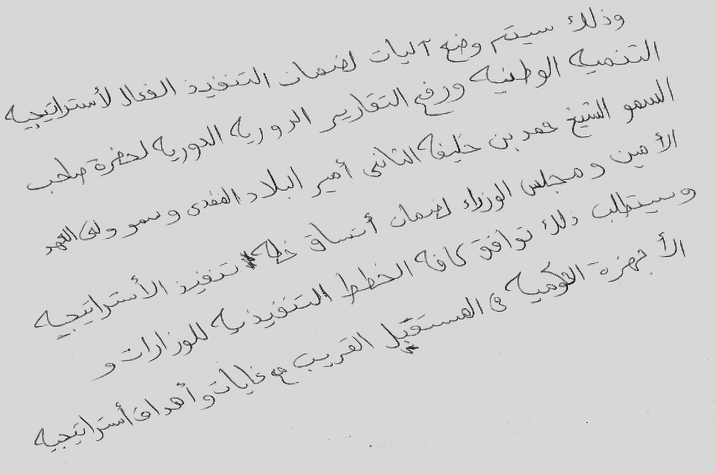 وذلك سيتم وضع آليات لضمان التنفيذ الفعال لأستراتيجيه
التنميه الوطنيه ورفع التقارير الدوريه الدوريه لحضرة صاحب
السمو الشيخ حمد بن خليفه الثاني أمير البلاد المفدى وسمو ولي العهد
الأمين ومجلس الوزراء لضمان أتساق خطه تنفيذ الأستراتيجيه
وسيتطلب ذلك توافق كافه الخطط التنفيذيه للوزارات و
الأجهزة الحكوميه في المستقبل القريب مع غايات وأهداف أستراتيجيه